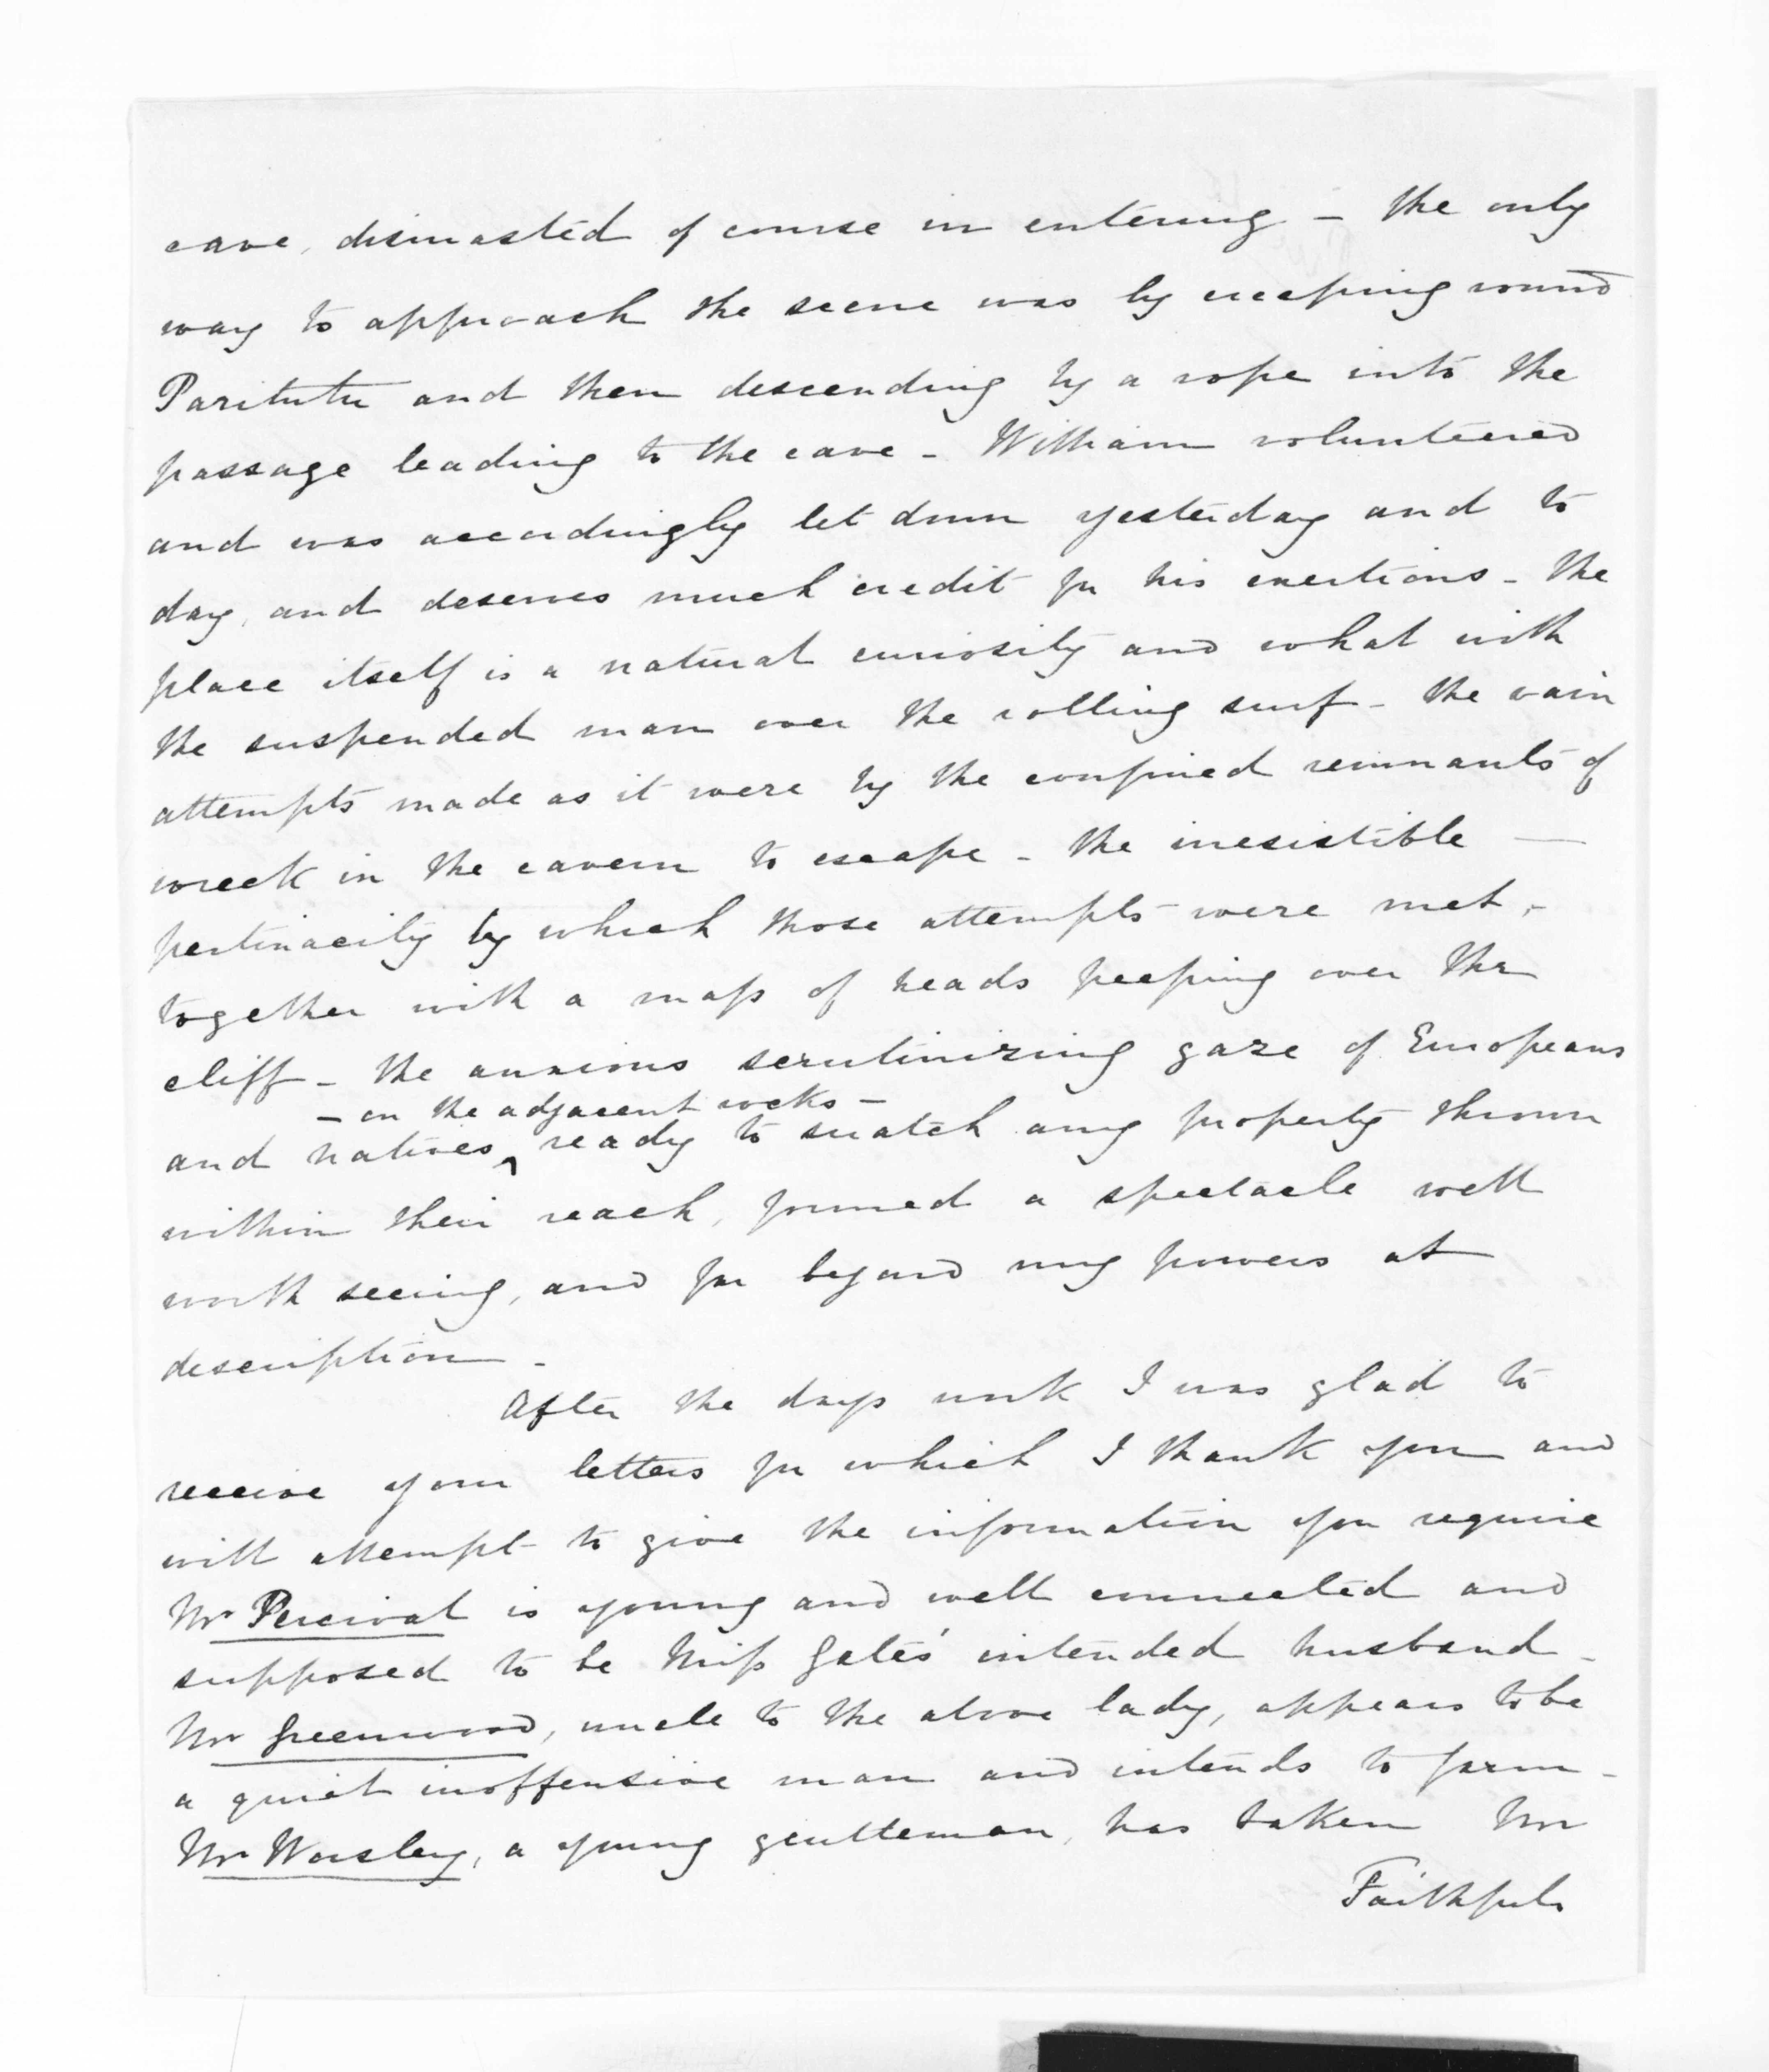 cave, dismasted of course in entering - the only
way to approach the scene was by creeping round
Paritutu and then descending by a rope into the
passage leading to the cave - William volunteered
and was accordingly let down yesterday and to
day, and deserves much credit for his exertions - the
place itself is a natural curiosity and what with
the suspended man over the rolling surf - the vain
attempts made as it were by the confined remnants of
wreck in the cavern to escape - the irresistible —
pertinacity by which those attempts were met, -
together with a mass of heads peeping over the
cliff - the anxious scrutinizing gaze of Europeans
- on the adjacent rocks -
and natives ^ ready to snatch any property thrown
within their reach, formed a spectacle well
worth seeing, and far beyond my powers at
description -
After the days work I was glad to
receive your letters for which I thank you and
will attempt to give the information you require
Mr Percival is young and well connected and
supposed to be Miss Gates' intended husband -
Mr Greenwood, uncle to the above lady, appears to be
a quiet inoffensive man and intends to farm -
Mr Worsley, a young gentleman, has taken Mr
Faithfuls